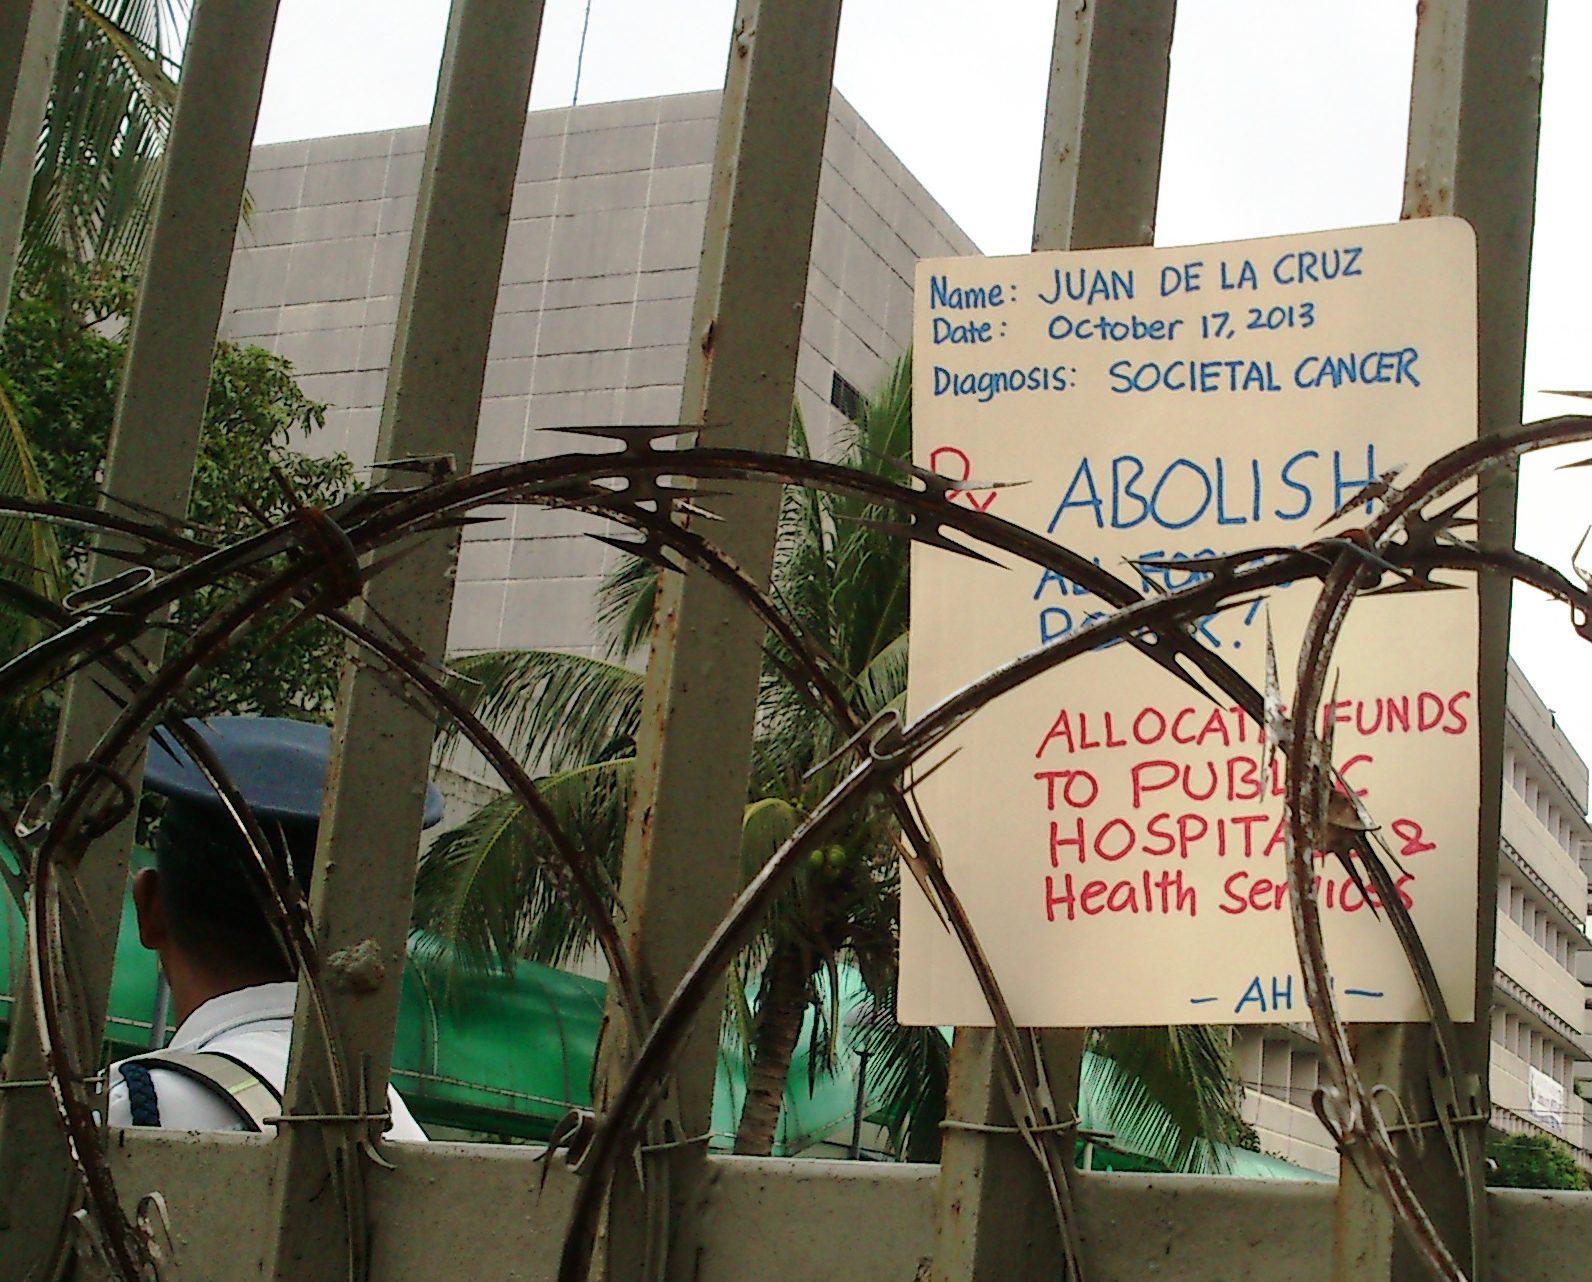 Name: JUAN DE LA CRUZ
Date: October 17, 2013
Diagnosis: SOCIETAL CANCER
Rx ABOLISH
ALL
ALLOCATE FUNDS
TO PUBLIC
HOSPITALS &
Health Services